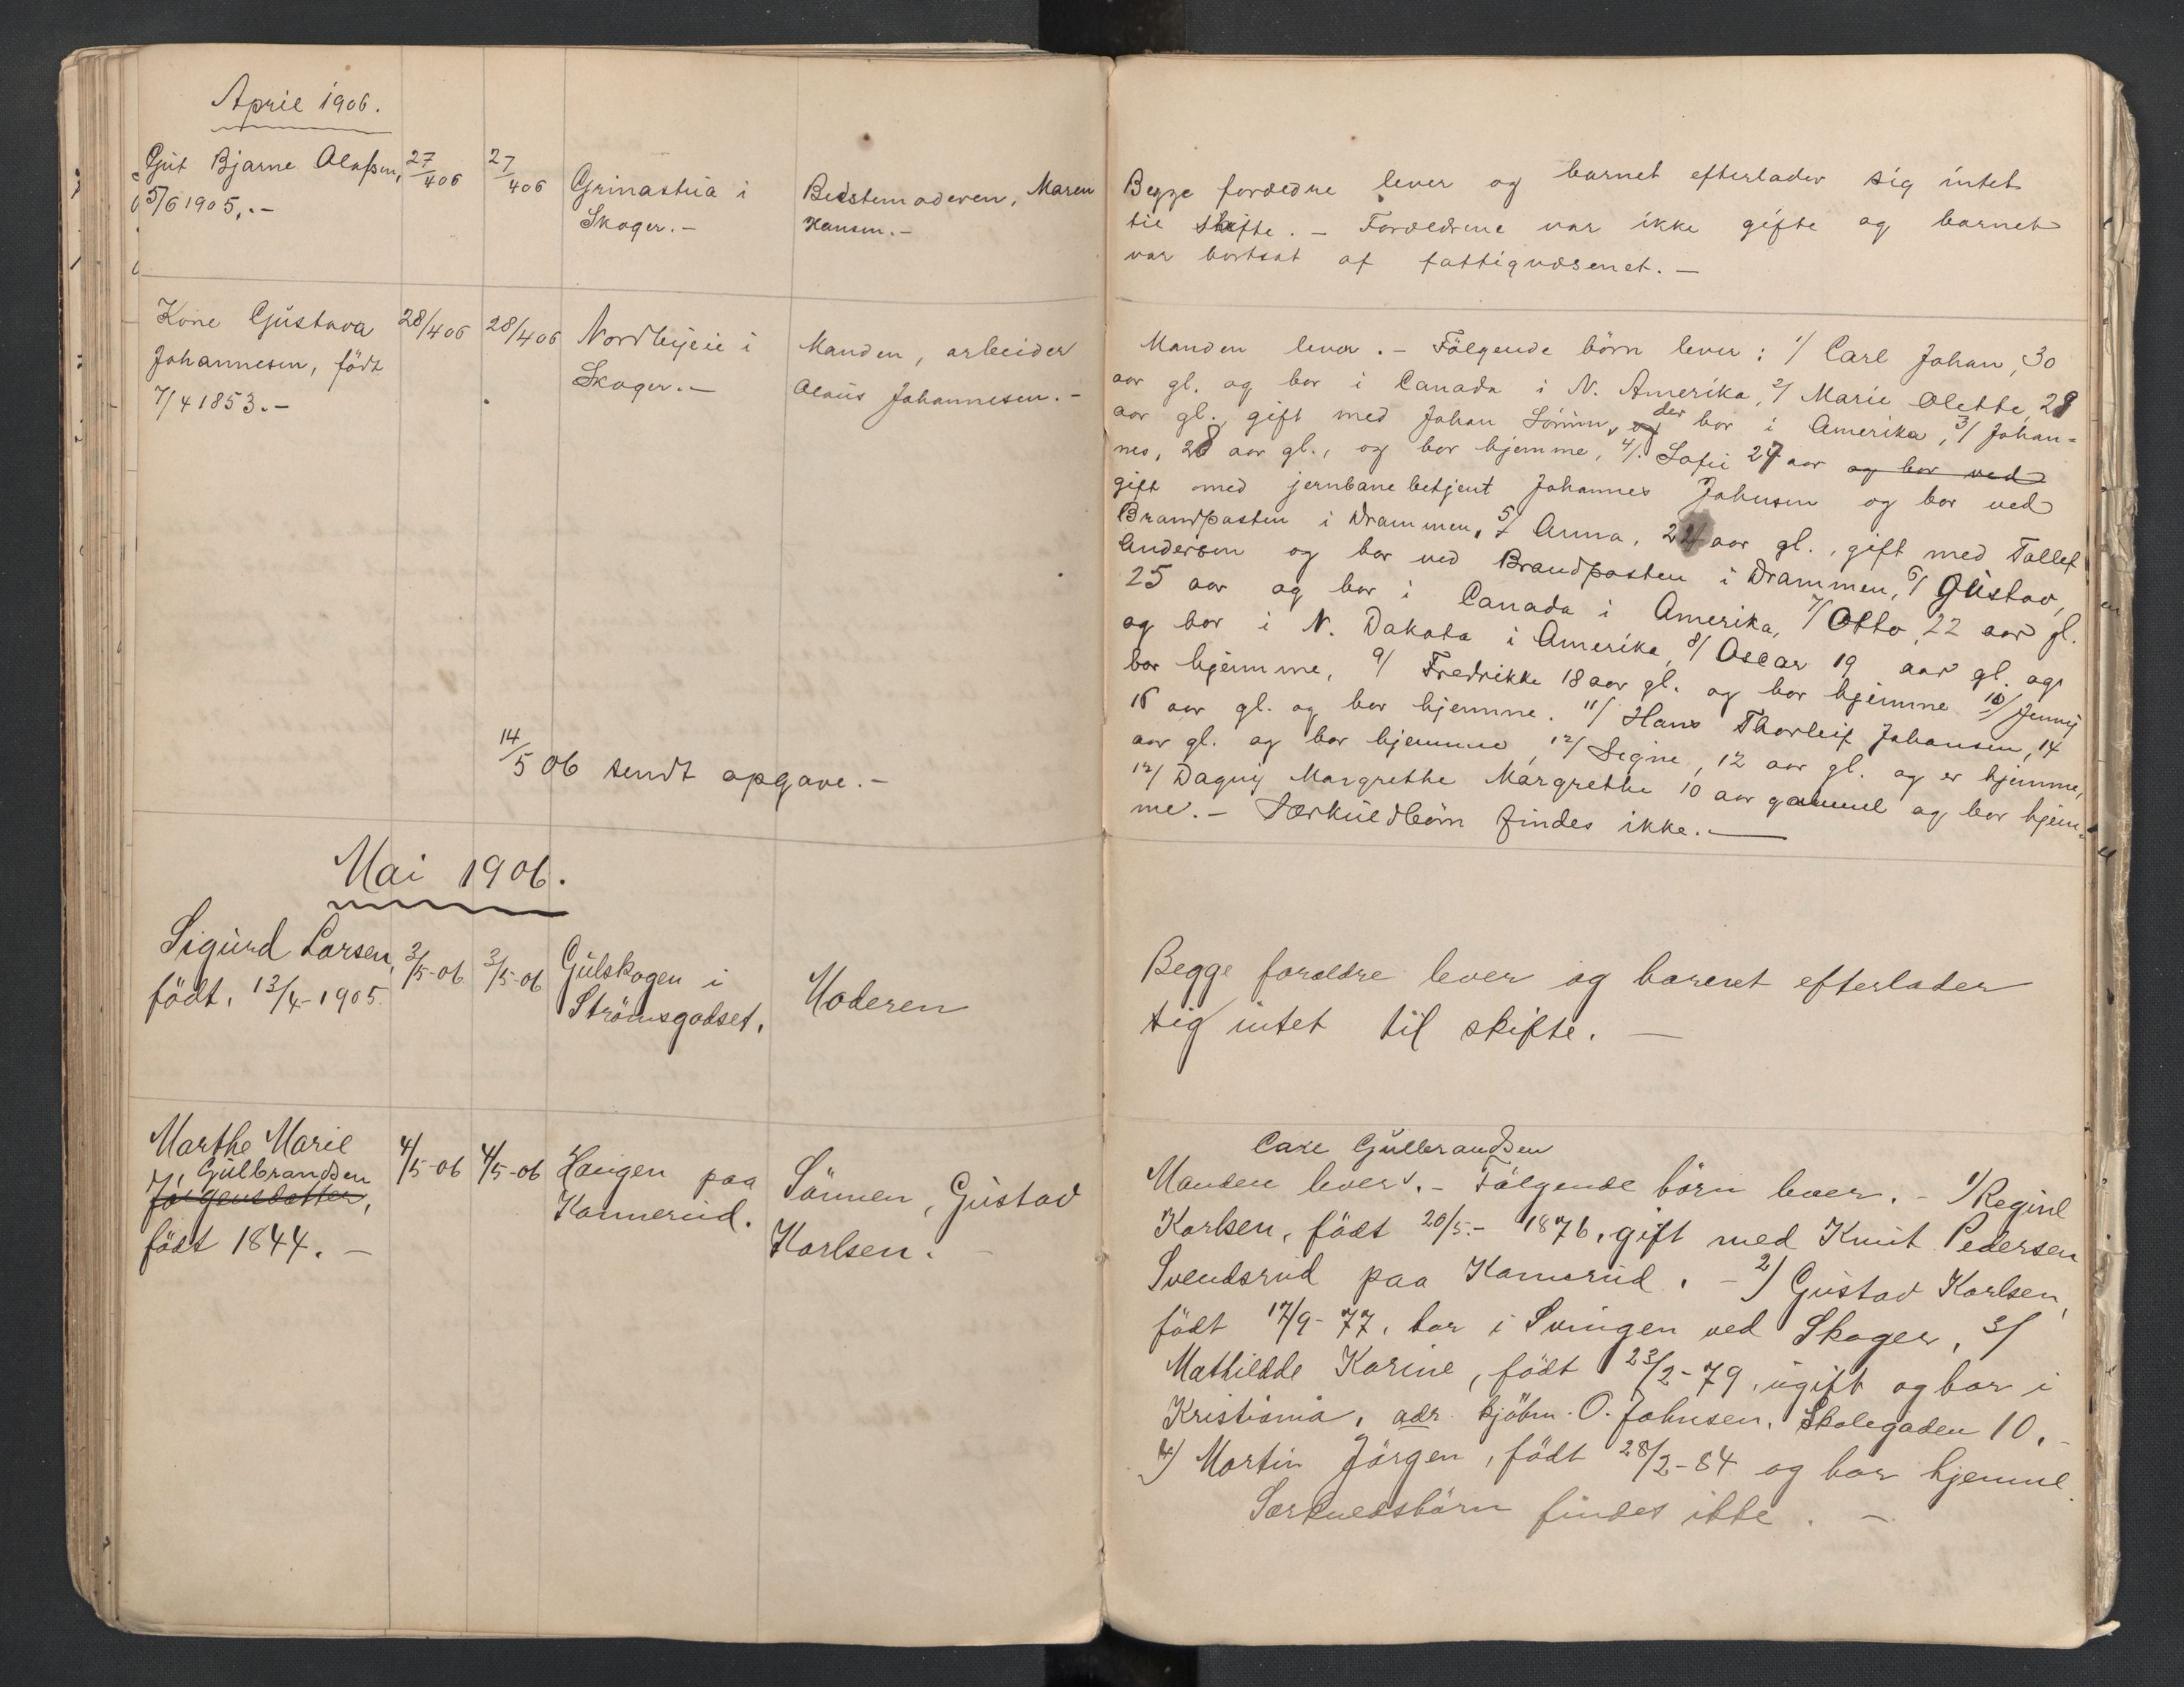 April 1906.
Gut Bjarne Olafsen,
5/6 1905.-
27/4 06
27/4 06
Grinastua i
Skoger.-
Bedstemoderen, Maren
Hansen.-
Begge forældre lever og barnet efterlader sig intet
til skifte. - Forældrene var ikke gifte og barnet
var bortsat af fattigvæsenet. -
Kone Gustava
Johannesen, født
7/4 1853.-
28/4 06
28/4 06
Nordbyeie i
Skoger.-
Manden, arbeider
Olaus Johannesen.-
Manden lever. - Følgende børn lever: 1/ Carl Johan, 30
aar gl. og bor i Canada i N. Amerika, 2/ Marie Olette, 29
aar gl., gift med Johan, der bor i Amerika, 3/ Johan=
nes, 28 aar gl., og bor hjemme, 4/. Sofie 27 aar og bor ved
gift med jernbanebetjent Johannes Johnsen og bor ved
Brandposten i Drammen, 5/ Anna, 24 aar gl., gift med Tollef
Andersen og bor ved Brandposten i Drammen, 6/ Gustav,
25 aar og bor i Canada i Amerika, 7/ Otto, 22 aar gl.
og bor i N. Dakota i Amerika, 8/ Oscar 19 aar gl. og
bor hjemme, 9/ Fredrikke 18 aar gl. og bor hjemme 10/ Jenny
16 aar gl. og bor hjemme. 11/ Hans Thorleif Johansen, 14
aar gl. og bor hjemme, 12/ Signe, 12 aar gl. og er hjemme,
12/ Dagny Margrethe Margrethe 10 aar gammel og bor hjem=
me. - Særkuldbörn findes ikke. -
14/5 06 sendt opgave.-
Mai 1906.
Sigurd Larsen,
født, 13/4-1905
3/5-06
3/5-06
Gulskogen i
Strømsgodset.
Moderen
Begge forældre lever og barnet efterlader
sig intet til skifte. -
Marthe Marie
Gulbrandsen
Jørgensdatter,
født 1844. -
4/5-06
4/5-06
Haugen paa
Konnerud.
Sønnen, Gustav
Karlsen. -
Carl Gulbrandsen
Manden lever. - Følgende børn lever. - 1/ Regine
Karlsen, født 20/5.- 1876, gift med Knut Pedersen
Svendsrud paa Konnerud. - 2/ Gustav Karlsen,
født 17/9-77, bor i Svingen ved Skoger, 3/
Mathilde Karine, født 23/2-79, ugift og bor i
Kristiania, adr. kjøbm. O. Johnsen, Skolegaden 10. -
4) Martin Jørgen, født 28/2-84 og bor hjemme.
Særkuldsbørn findes ikke. -